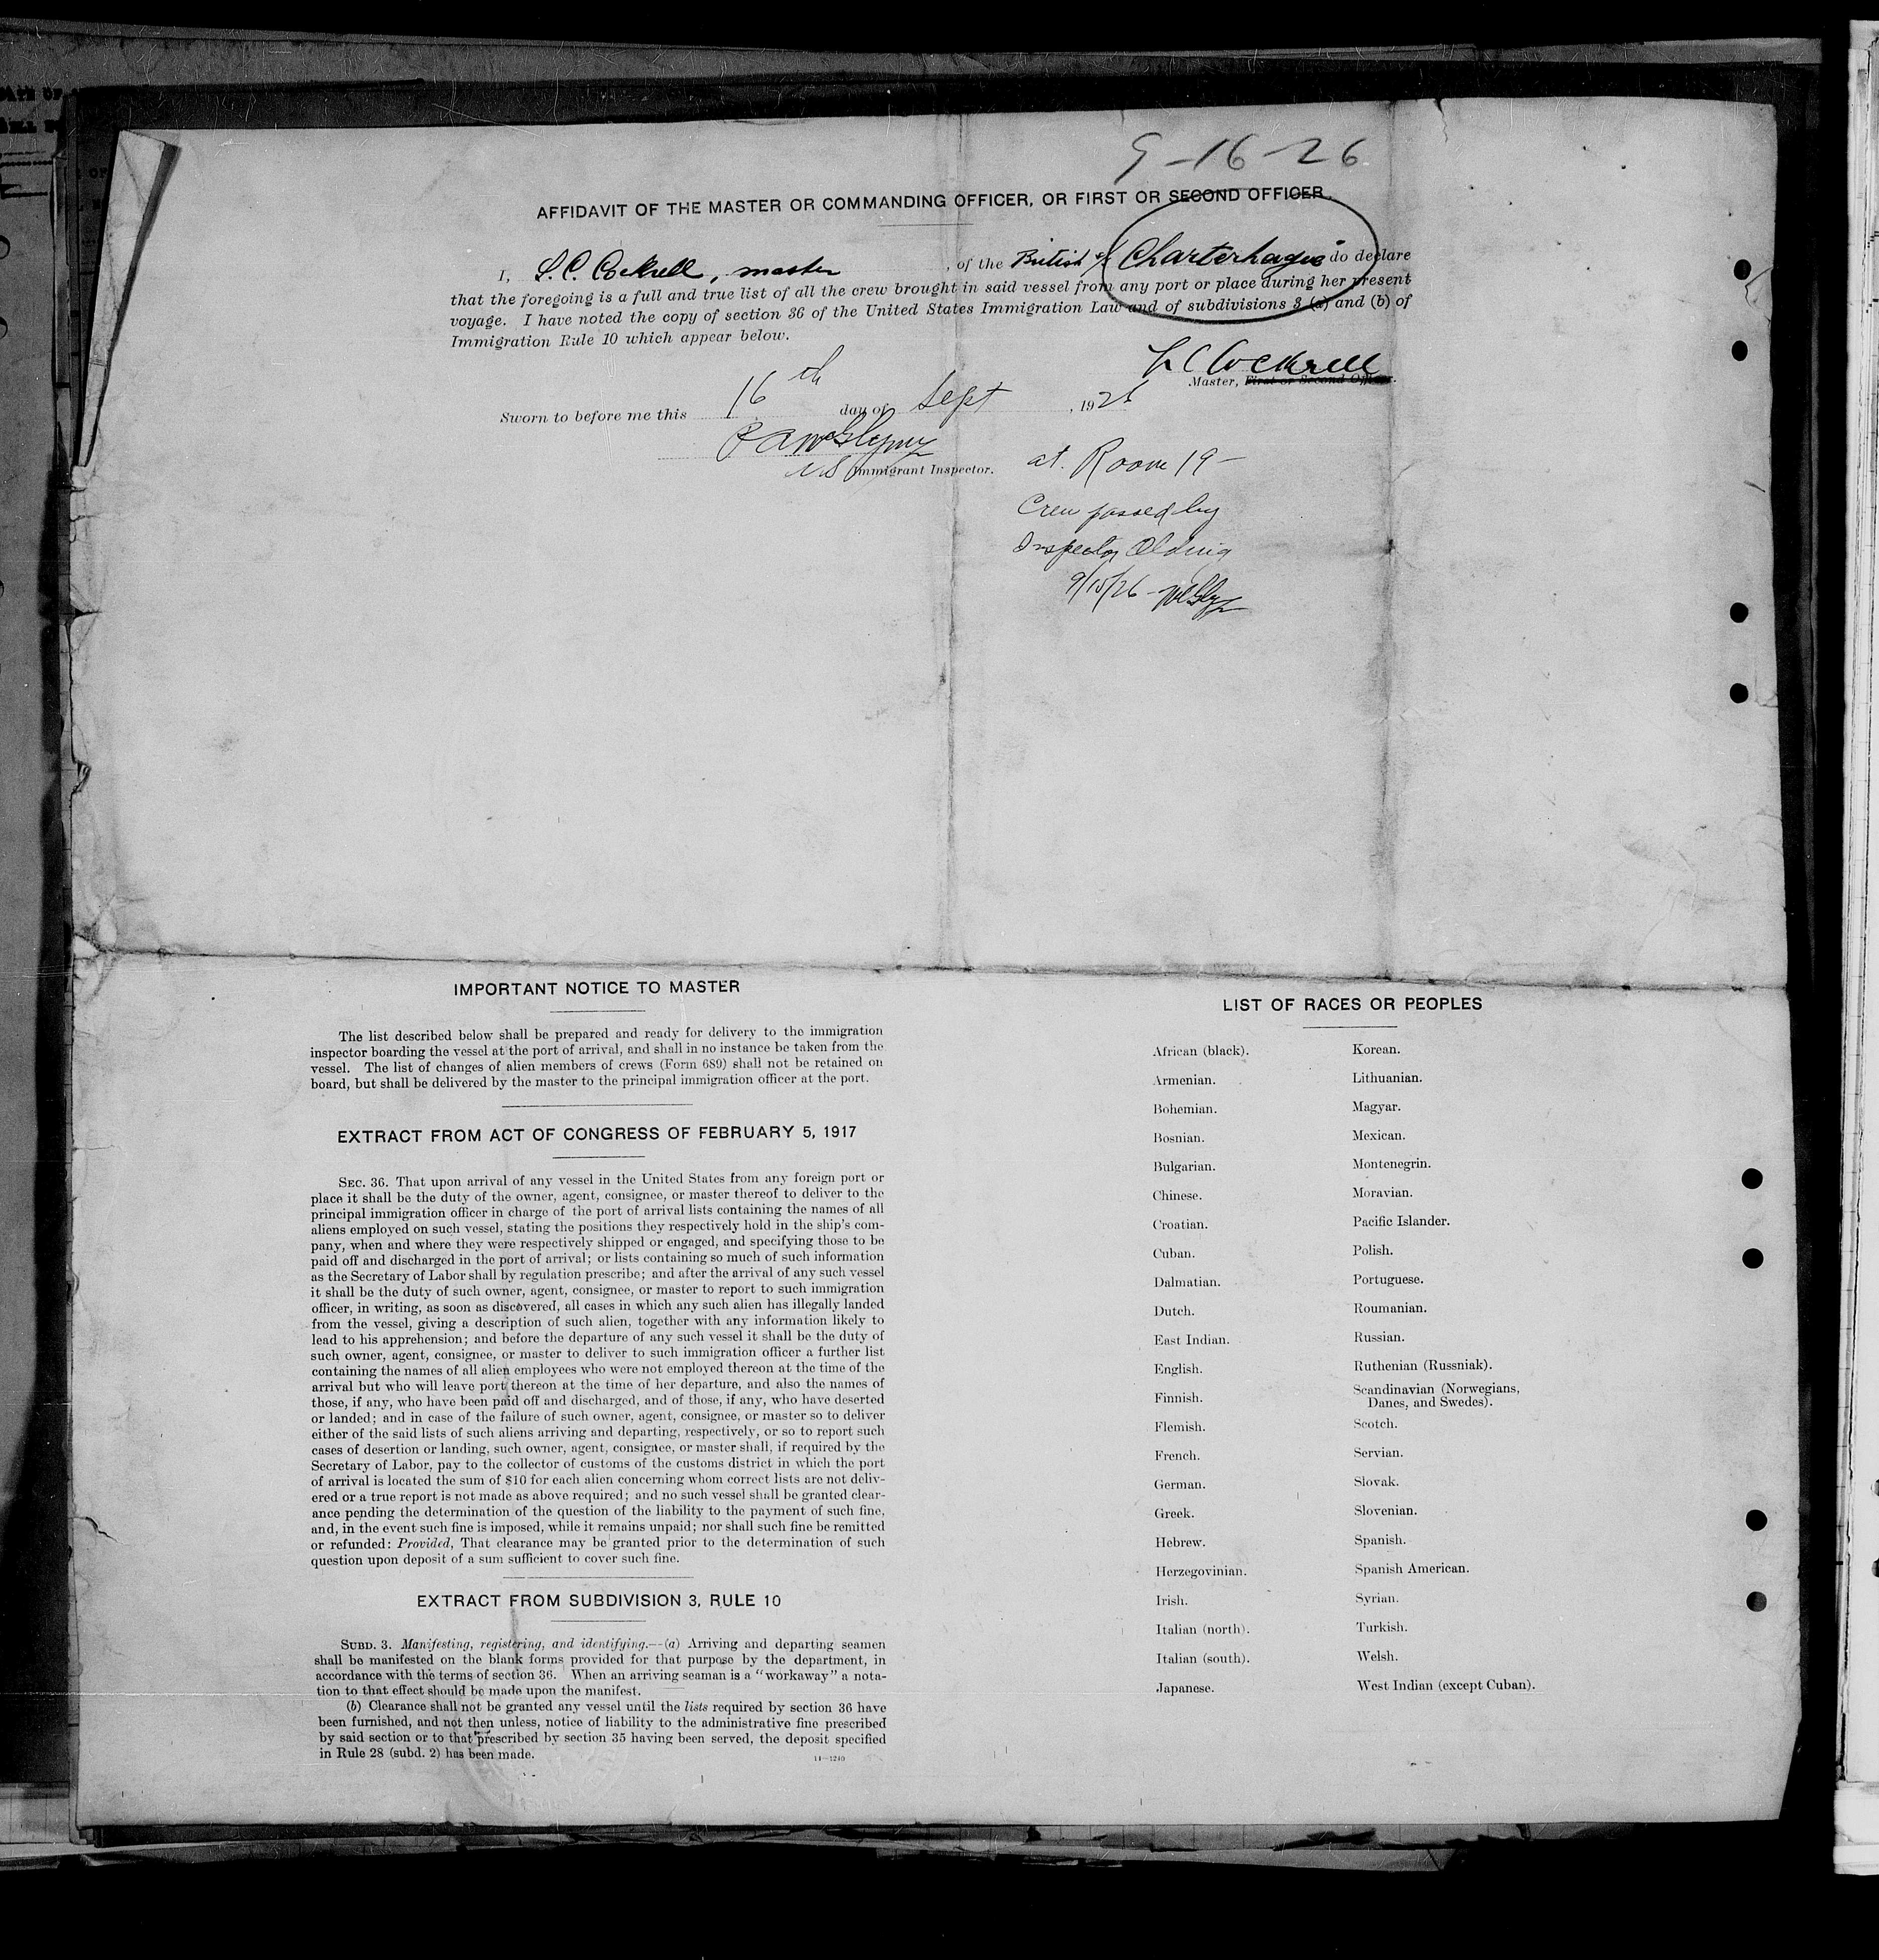 9-16-26
AFFIDAVIT OF THE MASTER OR COMMANDING OFFICER, OR FIRST OR SECOND OFFICER.
I, L. C. Cockrell, master, of the British Charterhague do declare
that the foregoing is a full and true list of all the crew brought in said vessel from any port or place during her present
voyage. I have noted the copy of section 36 of the United States Immigration Law and of subdivisions 3 (a) and (b) of
Immigration Rule 10 which appear below.
L C Cockrell
Master, First or Second Officer.
Sworn to before me this 16th day of Sept, 1926
US Immigrant Inspector.
at Room 19 -
Crew passed by
Inspector
9/15/26 -
IMPORTANT NOTICE TO MASTER
The list described below shall be prepared and ready for delivery to the immigration
inspector boarding the vessel at the port of arrival, and shall in no instance be taken from the
vessel. The list of changes of alien members of crews (Form 689) shall not be retained on
board, but shall be delivered by the master to the principal immigration officer at the port.
EXTRACT FROM ACT OF CONGRESS OF FEBRUARY 5, 1917
SEC. 36. That upon arrival of any vessel in the United States from any foreign port or
place it shall be the duty of the owner, agent, consignee, or master thereof to deliver to the
principal immigration officer in charge of the port of arrival lists containing the names of all
aliens employed on such vessel, stating the positions they respectively hold in the ship's com-
pany, when and where they were respectively shipped or engaged, and specifying those to be
paid off and discharged in the port of arrival; or lists containing so much of such information
as the Secretary of Labor shall by regulation prescribe; and after the arrival of any such vessel
it shall be the duty of such owner, agent, consignee, or master to report to such immigration
officer, in writing, as soon as discovered, all cases in which any such alien has illegally landed
from the vessel, giving a description of such alien, together with any information likely to
lead to his apprehension; and before the departure of any such vessel it shall be the duty of
such owner, agent, consignee, or master to deliver to such immigration officer a further list
containing the names of all alien employees who were not employed thereon at the time of the
arrival but who will leave port thereon at the time of her departure, and also the names of
those, if any, who have been paid off and discharged, and of those, if any, who have deserted
or landed; and in case of the failure of such owner, agent, consignee, or master so to deliver
either of the said lists of such aliens arriving and departing, respectively, or so to report such
cases of desertion or landing, such owner, agent, consignee, or master shall, if required by the
Secretary of Labor, pay to the collector of customs of the customs district in which the port
of arrival is located the sum of $10 for each alien concerning whom correct lists are not deliv-
ered or a true report is not made as above required; and no such vessel shall be granted clear-
ance pending the determination of the question of the liability to the payment of such fine,
and, in the event such fine is imposed, while it remains unpaid; nor shall such fine be remitted
or refunded: Provided, That clearance may be granted prior to the determination of such
question upon deposit of a sum sufficient to cover such fine.
EXTRACT FROM SUBDIVISION 3, RULE 10
SUBD. 3. Manifesting, registering, and identifying.—(a) Arriving and departing seamen
shall be manifested on the blank forms provided for that purpose by the department, in
accordance with the terms of section 36. When an arriving seaman is a "workaway" a nota-
tion to that effect should be made upon the manifest.
(b) Clearance shall not be granted any vessel until the lists required by section 36 have
been furnished, and not then unless, notice of liability to the administrative fine prescribed
by said section or to that prescribed by section 35 having been served, the deposit specified
in Rule 28 (subd. 2) has been made.
14—1240
LIST OF RACES OR PEOPLES
African (black).
Armenian.
Bohemian.
Bosnian.
Bulgarian.
Chinese.
Croatian.
Cuban.
Dalmatian.
Dutch.
East Indian.
English.
Finnish.
Flemish.
French.
German.
Greek.
Hebrew.
Herzegovinian.
Irish.
Italian (north).
Italian (south).
Japanese.
Korean.
Lithuanian.
Magyar.
Mexican.
Montenegrin.
Moravian.
Pacific Islander.
Polish.
Portuguese.
Roumanian.
Russian.
Ruthenian (Russniak).
Scandinavian (Norwegians,
Danes, and Swedes).
Scotch.
Servian.
Slovak.
Slovenian.
Spanish.
Spanish American.
Syrian.
Turkish.
Welsh.
West Indian (except Cuban).